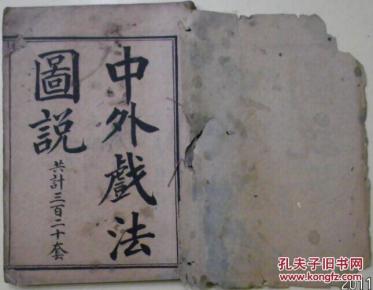 中外戲法
圖說
共計三百二十套
孔夫子旧书网
www.kongfz.com
2011